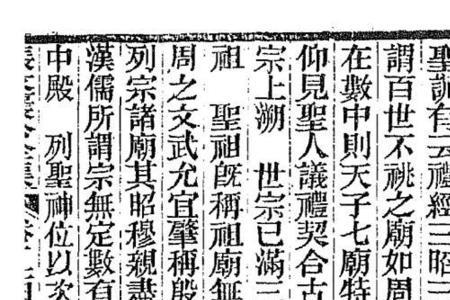 聖訓有云禮經三昭三
謂百世不祧之廟如周
在數中則天子七廟特
仰見聖人議禮契合古
宗上溯　世宗已滿三
祖　聖祖旣稱祖廟無
周之文武允宜肇稱殷
列宗諸廟其昭穆親盡
漢儒所謂宗無定數有
中殿　列聖神位以次